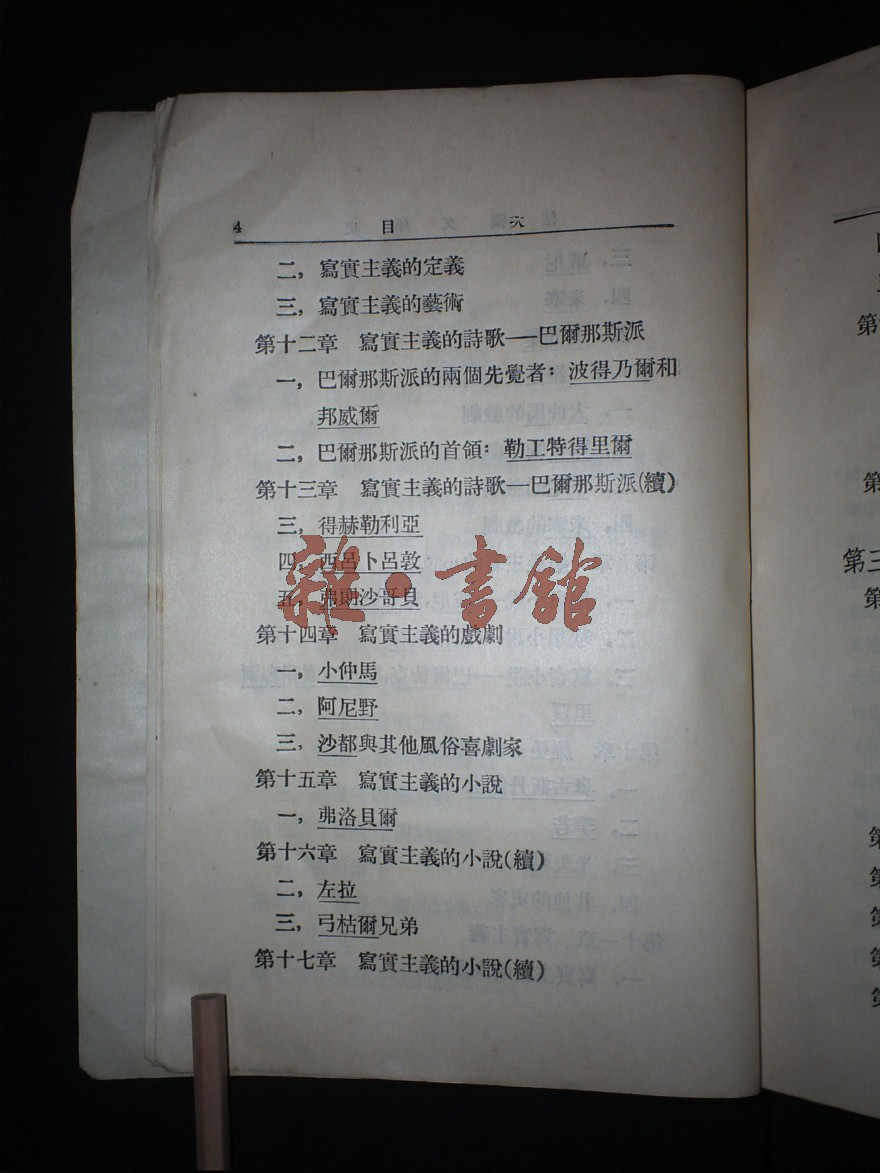 4 目 次
二，寫實主義的定義
三，寫實主義的藝術
第十二章 寫實主義的詩歌──巴爾那斯派
一，巴爾那斯派的兩個先覺者：波得乃爾和
邦威爾
二，巴爾那斯派的首領：勒工特得里爾
第十三章 寫實主義的詩歌──巴爾那斯派(續)
三，得赫勒利亞
四，西呂卜呂敦
五，弗朗沙哥貝
雜·書館
第十四章 寫實主義的戲劇
一，小仲馬
二，阿尼野
三，沙都與其他風俗喜劇家
第十五章 寫實主義的小說
一，弗洛貝爾
第十六章 寫實主義的小說(續)
二，左拉
三，弓枯爾兄弟
第十七章 寫實主義的小說(續)
第
第
第三
第
第
第
第
第
第